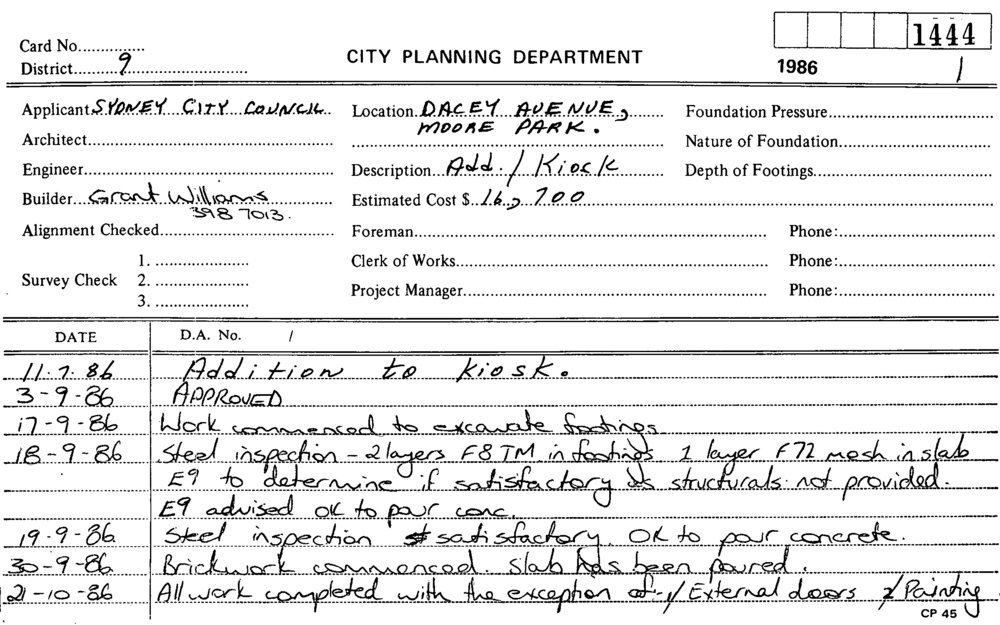 Card No...............
1444
District.........9..............................
CITY PLANNING DEPARTMENT
1986 1
Applicant SYDNEY CITY COUNCIL
Location DACEY AVENUE,
Foundation Pressure
MOORE PARK.
Architect
Nature of Foundation
Engineer
Description Add. / Kiosk
Depth of Footings
Builder Grant Williams
Estimated Cost $ 16,700
398 7013.
Alignment Checked
Foreman
Phone:
1.
Clerk of Works
Phone:
Survey Check 2.
Project Manager
Phone:
3.
DATE D.A. No. /
11.7.86 Addition to kiosk.
3-9-86 APPROVED
17-9-86 Work commenced to excavate footings
18-9-86 Steel inspection - 2 layers F8TM in footings 1 layer F72 mesh in slab
E9 to determine if satisfactory as structurals not provided.
E9 advised OK to pour conc.
19-9-86 Steel inspection satisfactory. OK to pour concrete.
30-9-86 Brickwork commenced. Slab has been poured.
21-10-86 All work completed with the exception of - 1/ External doors 2/ Painting
CP 45